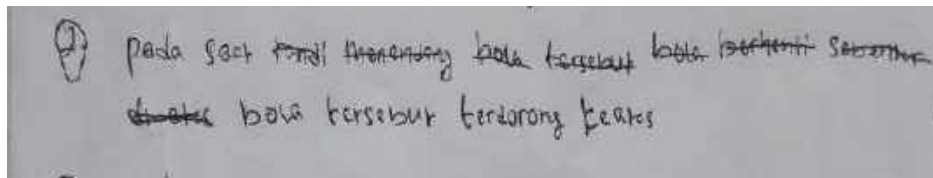 2) pada saat tendi menendang bola tersebut bola berhenti sebentar
diatas bola tersebut terdorong keatas